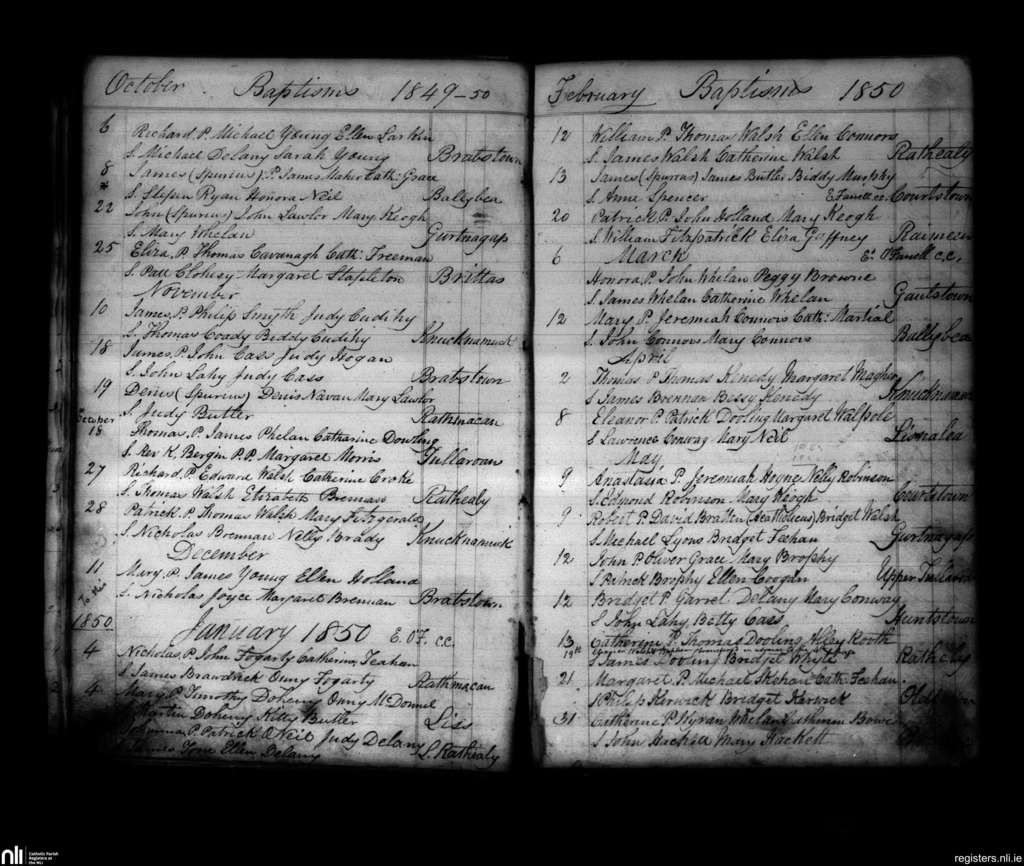 October Baptisms 1849-50
6 Richard. P. Michael Young Ellen Larkin
S. Michael Delany Sarah Young Bratstown
8 James (Spurius) P. James Maher Cath: Grace
S. Stepn Ryan Honora Neil Ballybea
22 John (Spurius) John Lawlor Mary Keogh
S. Mary Whelan Gurtnagap
25 Eliza, P. Thomas Cavanagh Cath: Freeman
S. Patt Clohesy Margaret Stapleton Brittas
November
10 James, P. Philip Smyth Judy Cudihy
S. Thomas Coady Biddy Cudihy Knucknamuck
18 James, P. John Cass Judy Hogan
S. John Lahy Judy Cass Bratstown
19 Denis (Spurius) Denis Navan Mary Lawlor
S. Judy Butler Rathmacan
October
18 Thomas. P. James Phelan Catharine Dowling
S. Rev K. Bergin P.P. Margaret Morris Tullaroan
27 Richard. P. Edward Walsh Catherine Croke
S. Thomas Walsh Elizabeth Brennan Rathealy
28 Patrick. P. Thomas Walsh Mary Fitzgerald
S. Nicholas Brennan Nelly Brady Knucknamuck
December
11 Mary. P. James Young Ellen Holland
S. Nicholas Joyce Margaret Brennan Bratstown
1850 January 1850 E. O'F. cc.
4 Nicholas. P. John Fogarty Catherine Feahan
S. James Brawdrick Onny Fogarty Rathmacan
4 Mary. P. Timothy Doheny Onny McDonnel
S. Martin Doheny Kitty Butler Liss
Johanna P. Patrick O Neil Judy Delany
S. James Tone Ellen Delany L. Rathealy
February Baptisms 1850
12 William P. Thomas Walsh Ellen Connors
S. James Walsh Catherine Walsh Rathealy
13 James (Spurius) James Butler Biddy Murphy
S. Anne Spencer Courtstown
20 Patrick P. John Holland Mary Keogh
S. William Fitzpatrick Eliza Gaffney
6 March
Honora, P. John Whelan Peggy Browne
S. James Whelan Catherine Whelan Gautstown
12 Mary P. Jeremiah Connors Cath: Martial
S. John Connors Mary Connors Ballybea
April
2 Thomas P. Thomas Kenedy Margaret Magher
S. James Brennan Bessy Kenedy
8 Eleanor P. Patrick Dooling Margaret Walpole
S. Lawrence Conway Mary Neil Lisnalea
May
9 Anastasia P. Jeremiah Hoyne Nelly Robinson
S. Edmond Robinson Mary Keogh Courtstown
9 Robert P. David Bratten (Acatholicus) Bridget Walsh
S. Michael Lyons Bridget Feehan Gurtnagap
12 John P. Oliver Grace Mary Brophy
S. Patrick Brophy Ellen Coogan Upper Tullaroan
12 Bridget P. Garret Delany Mary Conway
S. John Lahy Betty Cass Huntstown
13 Catherine P. Thomas Dooling Alley Rooth
S. James Dooling Bridget Whyte Rathely
21 Margaret P. Michael Feehan Cath: Feehan
S. Philip Kerwick Bridget Kerwick
31 Catherine P. Kyran Whelan Catherine Bowe
S. John Hackett Mary Hackett
nli
Catholic Parish
Registers at
the NLI
registers.nli.ie